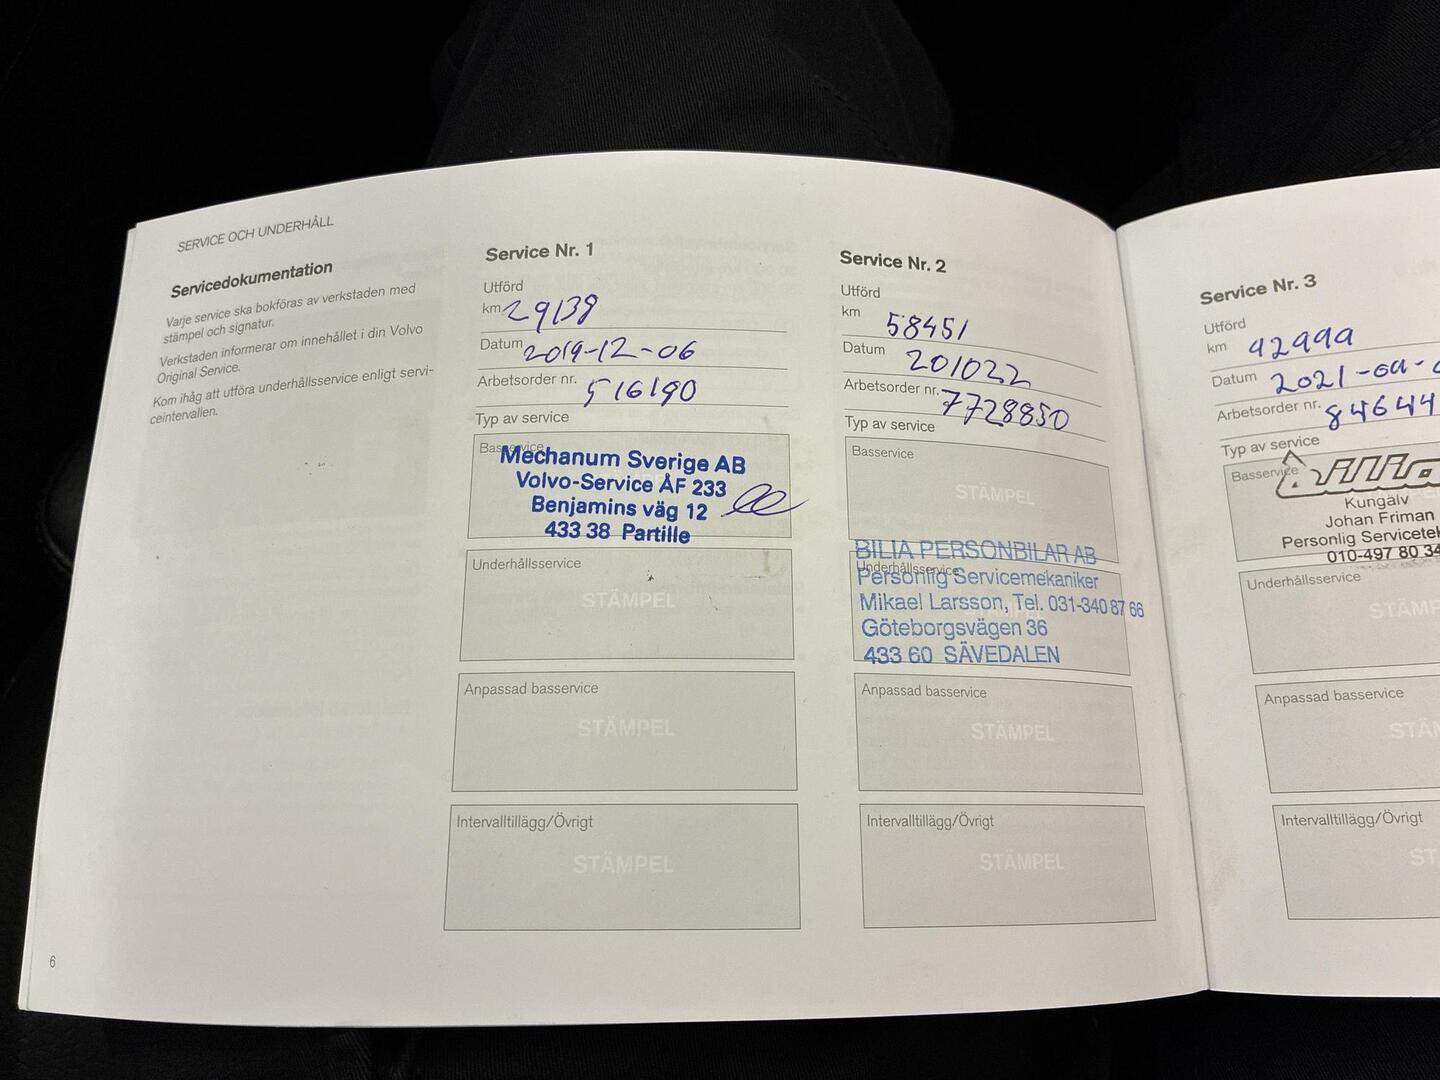 SERVICE OCH UNDERHÅLL
Servicedokumentation
Varje service ska bokföras av verkstaden med
stämpel och signatur.
Verkstaden informerar om innehållet i din Volvo
Original Service.
Kom ihåg att utföra underhållsservice enligt servi-
ceintervallen.
6
Service Nr. 1
Utförd
km 29138
Datum 2019-12-06
Arbetsorder nr. 516190
Typ av service
Basservice
Mechanum Sverige AB
Volvo-Service ÅF 233
Benjamins väg 12
433 38 Partille
Underhållsservice
STÄMPEL
Anpassad basservice
STÄMPEL
Intervalltillägg/Övrigt
STÄMPEL
Service Nr. 2
Utförd
km 58451
Datum 201022
Arbetsorder nr. 7728850
Typ av service
Basservice
STÄMPEL
BILIA PERSONBILAR AB
Underhållsservice
Personlig Servicemekaniker
Mikael Larsson, Tel. 031-340 87 66
Göteborgsvägen 36
433 60 SÄVEDALEN
Anpassad basservice
STÄMPEL
Intervalltillägg/Övrigt
STÄMPEL
Service Nr. 3
Utförd
km
Datum
Arbetsorder nr. 84644
Typ av service
Basservice
Bilia
Kungälv
Johan Friman
Personlig Servicetek
010-497 80 34
Underhållsservice
STÄMP
Anpassad basservice
STÄM
Intervalltillägg/Övrigt
ST